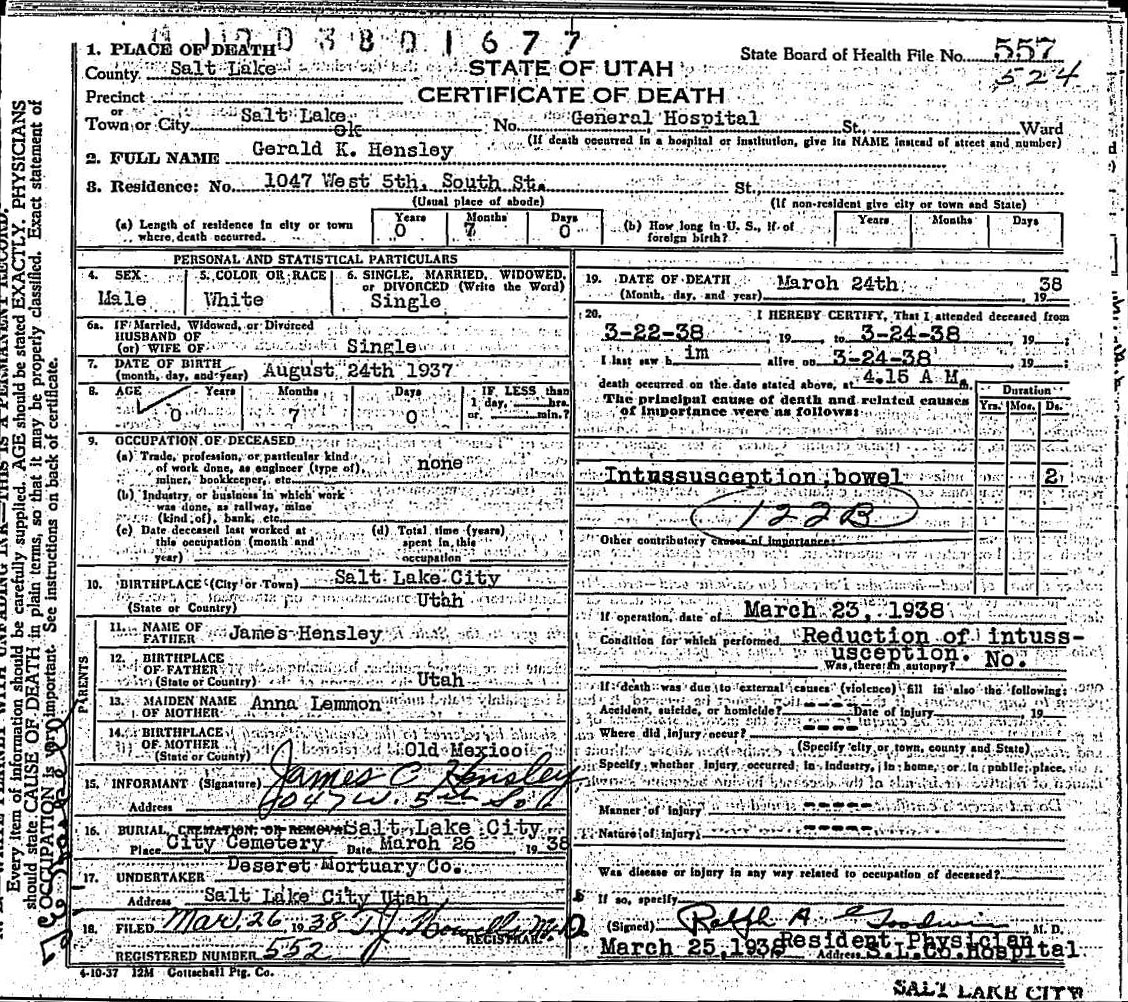 1. PLACE OF DEATH
203801677
State Board of Health File No. 557
524
County Salt Lake
STATE OF UTAH
Precinct
CERTIFICATE OF DEATH
or
Town or City Salt Lake No. General Hospital St., Ward
ok
(If death occurred in a hospital or institution, give its NAME instead of street and number)
2. FULL NAME Gerald K. Hensley
3. Residence: No. 1047 West 5th. South St. St.,
(Usual place of abode) (If non-resident give city or town and State)
(a) Length of residence in city or town where death occurred. Years 0 Months 7 Days 0
(b) How long in U. S., if of foreign birth? Years Months Days
PERSONAL AND STATISTICAL PARTICULARS
4. SEX Male
5. COLOR OR RACE White
6. SINGLE, MARRIED, WIDOWED, or DIVORCED (Write the Word) Single
6a. If Married, Widowed, or Divorced
HUSBAND OF
(or) WIFE OF Single
7. DATE OF BIRTH
(month, day, and year) August 24th 1937
8. AGE Years 0 Months 7 Days 0 IF LESS than 1 day, hrs. or min.?
9. OCCUPATION OF DECEASED
(a) Trade, profession, or particular kind
of work done, as engineer (type of),
miner, bookkeeper, etc. none
(b) Industry or business in which work
was done, as railway, mine
(kind of), bank, etc.
(c) Date deceased last worked at
this occupation (month and
year)
(d) Total time (years)
spent in this
occupation
10. BIRTHPLACE (City or Town) Salt Lake City
(State or Country) Utah
PARENTS
11. NAME OF
FATHER James Hensley
12. BIRTHPLACE
OF FATHER
(State or Country) Utah
13. MAIDEN NAME
OF MOTHER Anna Lemmon
14. BIRTHPLACE
OF MOTHER
(State or County) Old Mexico
15. INFORMANT (Signature) James C Hensley
Address 1047 W. 5th So
16. BURIAL, CREMATION, OR REMOVAL Salt Lake City
Place City Cemetery Date March 26 1938
17. UNDERTAKER Deseret Mortuary Co.
Address Salt Lake City Utah
18. FILED Mar. 26, 1938 T.J. Howells M.D.
REGISTRAR.
REGISTERED NUMBER 552
4-10-37 12M Gottschall Ptg. Co.
19. DATE OF DEATH March 24th 38
(Month, day, and year) , 19
20. I HEREBY CERTIFY, That I attended deceased from
3-22-38 19 to 3-24-38 , 19 ;
I last saw h im alive on 3-24-38 19 ;
death occurred on the date stated above, at 4.15 A M.
The principal cause of death and related causes
of importance were as follows:
Duration
Yrs. Mos. Ds.
Intussusception bowel 2
122B
Other contributory causes of importance:
If operation, date of March 23, 1938
Condition for which performed Reduction of intuss-
usception.
Was there an autopsy? No.
If death was due to external causes (violence) fill in also the following:
Accident, suicide, or homicide? ---- Date of injury , 19
Where did injury occur? ----
(Specify city or town, county and State)
Specify whether injury occurred in industry, in home, or in public place.
Manner of injury -----
Nature of injury -----
Was disease or injury in any way related to occupation of deceased?
If so, specify
(Signed) Ralph A Goodwin M. D.
March 25, 1938 Resident Physician
Address S.L.Co.Hospital
SALT LAKE CITY
Every item of information should be carefully supplied. AGE should be stated EXACTLY. PHYSICIANS
should state CAUSE OF DEATH in plain terms, so that it may be properly classified. Exact statement of
OCCUPATION is very important. See instructions on back of certificate.